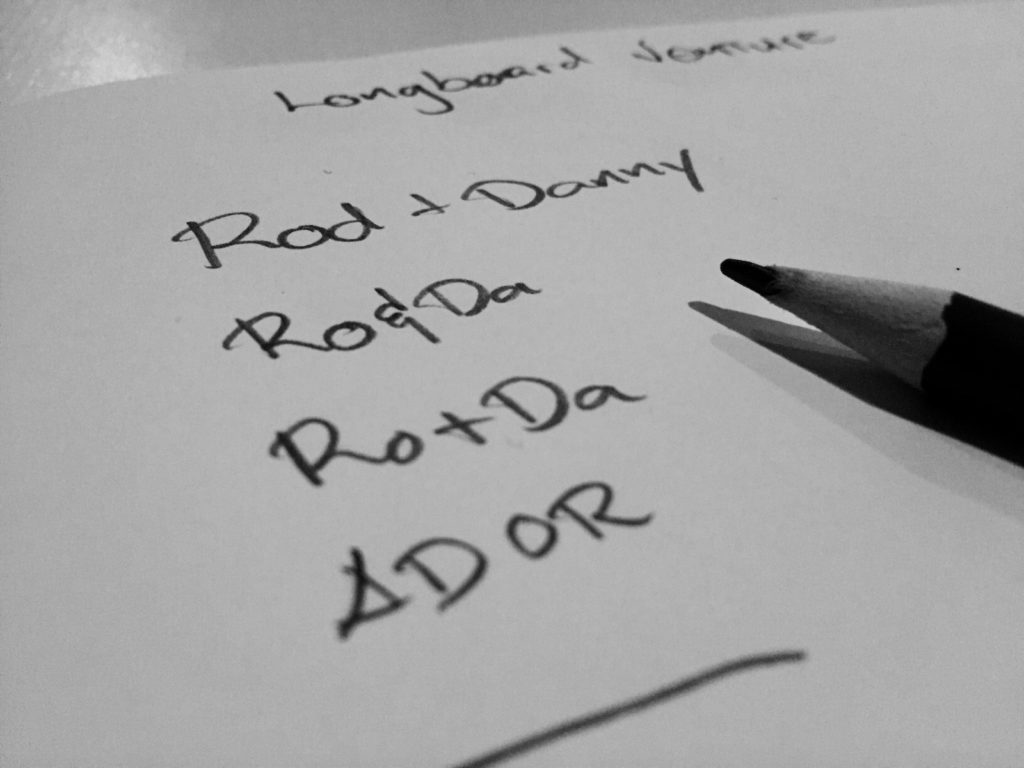 Longboard Venture
Rod + Danny
Ro&Da
Ro+Da
ADOR